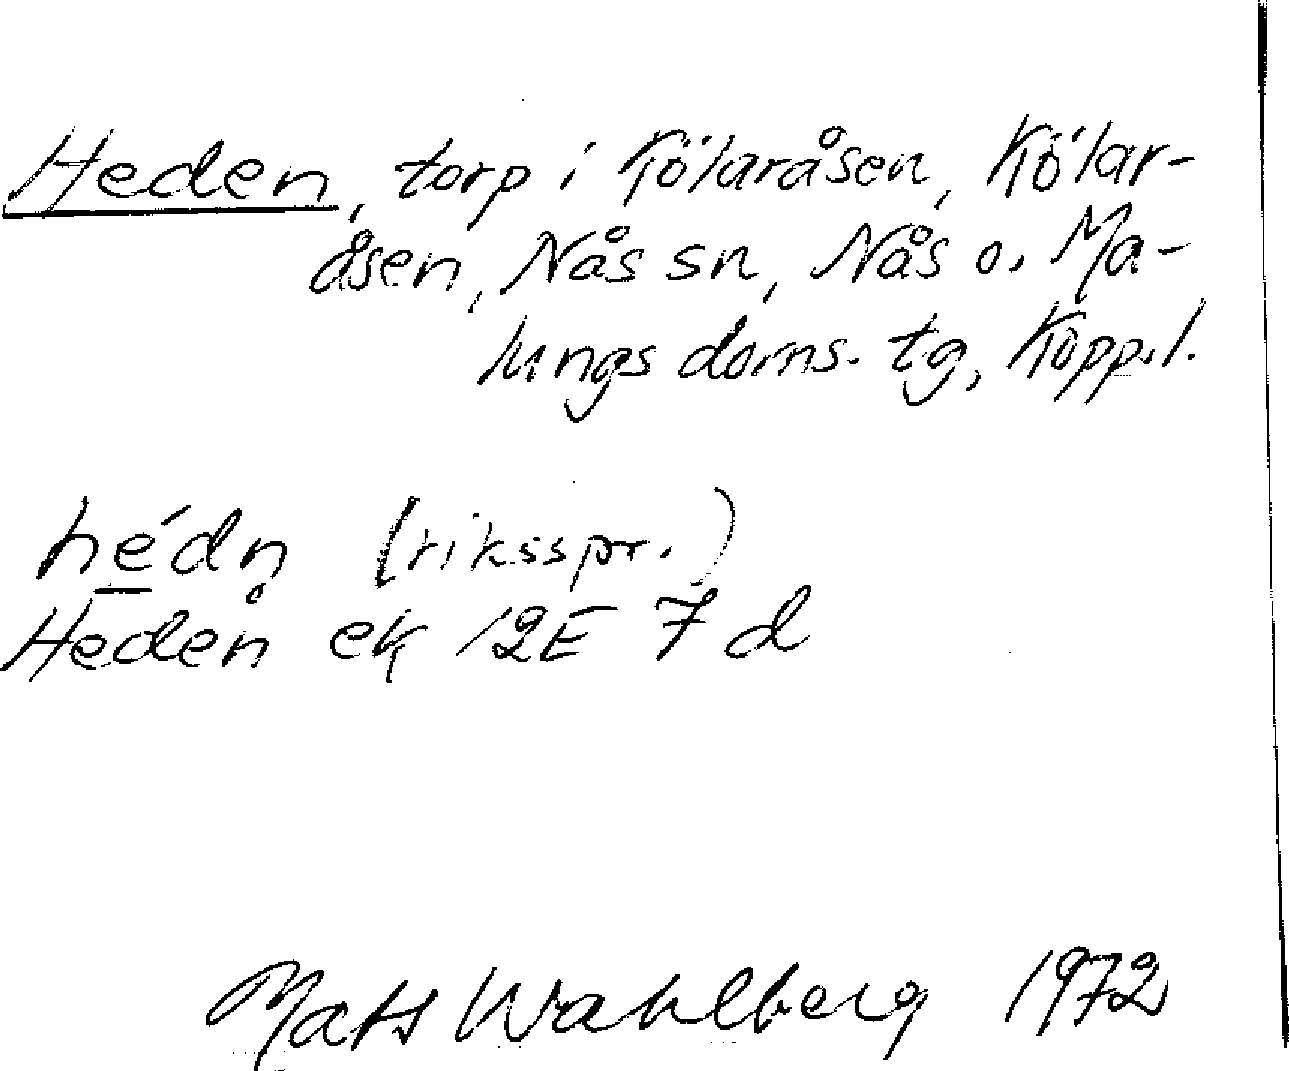 Heden, torp i Kölaråsen, Kölar-
åsen, Nås sn, Nås o. Ma-
lungs doms. tg, Kopp.l.
hédn̥ (riksspr.)
Heden ek 12E 7d
Mats Wahlberg 1972